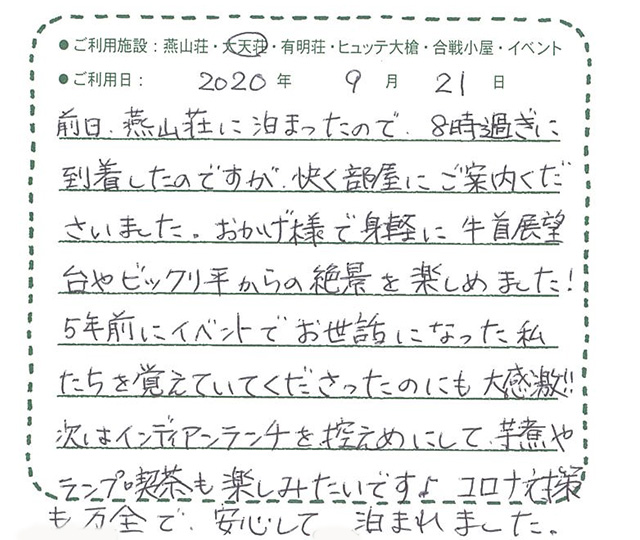 ●ご利用施設：燕山荘・大天荘・有明荘・ヒュッテ大槍・合戦小屋・イベント
●ご利用日： 2020 年 9 月 21 日
前日、燕山荘に泊まったので、8時過ぎに
到着したのですが、快く部屋にご案内くだ
さいました。おかげ様で身軽に牛首展望
台やビックリ平からの絶景を楽しめました!
5年前にイベントでお世話になった私
たちを覚えていてくださったのにも大感激!!
次はインディアンランチを控えめにして、芋煮や
ランプ喫茶も楽しみたいですよ コロナ対策
も万全で、安心して 泊まれました。